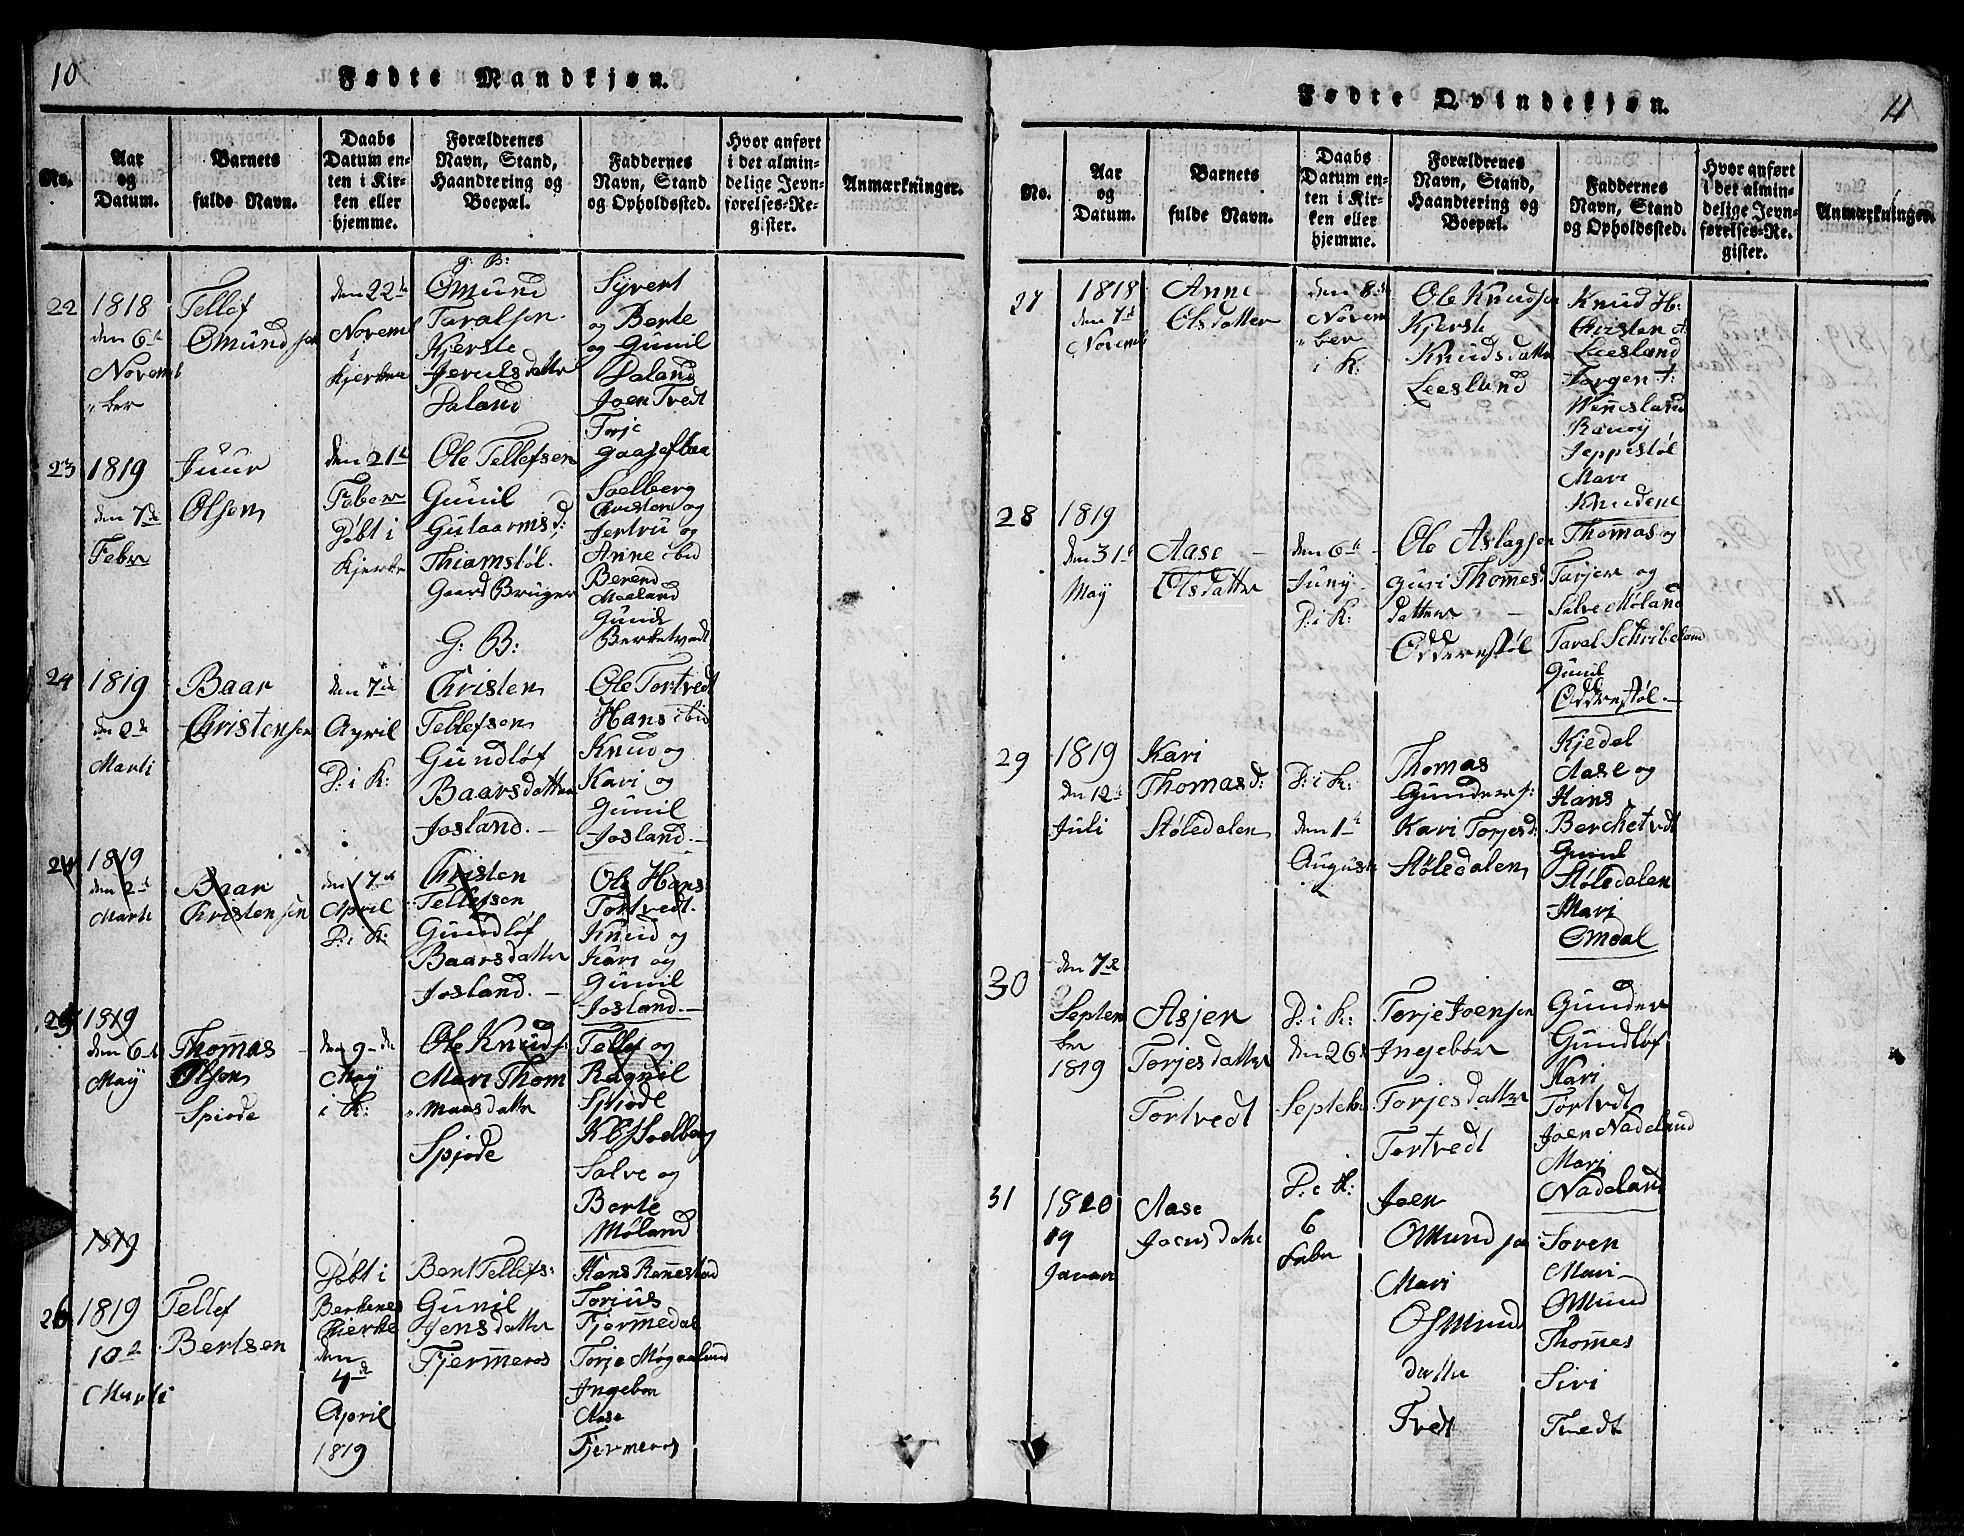 10
Fødte Mandkjøn.
No.
Aar
og
Datum.
Barnets
fulde Navn.
Daabs
Datum en-
ten i Kir-
ken eller
hjemme.
Forældrenes
Navn, Stand,
Haandtering og
Boepæl.
Faddernes
Navn, Stand
og Opholdssted.
Hvor anført
i det almin-
delige Jevn-
førelses-Re-
gister.
Anmærkninger.
22
1818
den 6te
Novemb
"ber
Tellef
Omundsen
den 22te
Novemb
i
Kjerken
g: B:
Omund
Taralsen
Kjerste
Jerulsdatter
Daland
Syvert
og Berte
og Gunil
Daland
Joen Tvedt
Torje
23
1819
den 7de
Febr
Juur
Olsen
den 21te
Feber
Døbt i
Kjerke
Ole Tellefsen
Gunil
Gutaarmsd:
Thiamstøl.
Gaard Bruger
G: B:
Soelberg
Christen og
Jertru og
Anne ibid
Berend
Moeland
Gunild
Berketvedt
24
1819
den 2de
Marti
Baar
Christensen
den 7de
April
D: i K:
Christen
Tellefsen
Gundløf
Baarsdatter
Josland.
Ole Tortvedt
Hans ibid
Knud og
Kari og
Gunil
Josland.
24
1819
den 2de
Marti
Baar
Christensen
den 17de
April
D: i K:
Christen
Tellefsen
Gundløf
Baarsdatter
Josland.
Ole Hans
Tortvedt.
Knud og
Kari og
Gunil
Josland.
25
1819
den 6te
May
Thomas
Olsen
Spiode
den 9de
May
i K:
Ole Knuds:
Mari Thom
"maasdatter
Spjode
Tellef og
Ragnil
Spiode
K O Soelberg
Salve og
Berte
Møland
1819
26
1819
10d
Marti
Tellef
Bertsen
Døbt i
Berkenes
Kierke
den
4de
April
1819
Bent Tellefs:
Gunil
Jensdatter
Fjermeros
Hans Rønnestad
Torius
Fjermedal
Torje Møgaalund
Ingebor
Aase
Fjermeros
11
Fødte Qvindekjøn.
No.
Aar
og
Datum.
Barnets
fulde Navn.
Daabs
Datum en-
ten i Kir-
ken eller
hjemme.
Forældrenes
Navn, Stand,
Haandtering og
Boepæl.
Faddernes
Navn, Stand
og Opholdssted.
Hvor anført
i det almin-
delige Jevn-
førelses-Re-
gister.
Anmærkninger.
27
1818
den 7de
Novemb
Anne
Olsdatter
den 8de
Novem
"ber
i K:
Ole Knudsen
Kjerste
Knudsdatter
Leeslund
Knud H:
Christen A:
Leesland
Jørgen T:
Wennesland
Ranoy
Jeppestøl
Mari
Knudene
28
1819
den 31te
May
Aase
Olsdatter
den 6te
Juny
D: i K:
Ole Aslagsen
Guri Thomes
datter
Odderstøl
Thomas og
Tarjer og
Salve Møland
Taral Schribeland
Gunil
Odderstøl.
29
1819
den 12te
Juli
Kari
Thomasd:
Støledalen
D: i K:
den 1te
August
Thomas
Gunders:
Kari Torjesd:
Støledalen
Kjedel
Aase og
Hans
Berchetvedt
Gunil
Støledalen
Mari
Omdal
30
den 7de
Septem
ber
1819
Asjer
Torjesdatter
Tortvedt
D: i K:
den 26de
Septeb
Torje Joensen
Ingebor
Torjesdatter
Tortvedt
Gunder
Gundløf
Kari
Tortvedt
Joen Nadeland
Mari
Nadeland
31
1820
19
Januari
Aase
Joensdater
D: i K:
6
Feber
Joen
Omundsen
Mari
Osmund
datter
Tvedt
Soren
Mari
Omund
Thommes
Siri
Tvedt